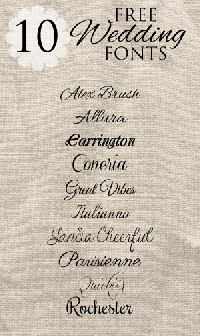 10
FREE
Wedding
FONTS
Alex Brush
Allura
Carrington
Coneria
Great Vibes
Italianno
Landa Cheerful
Parisienne
Rochester